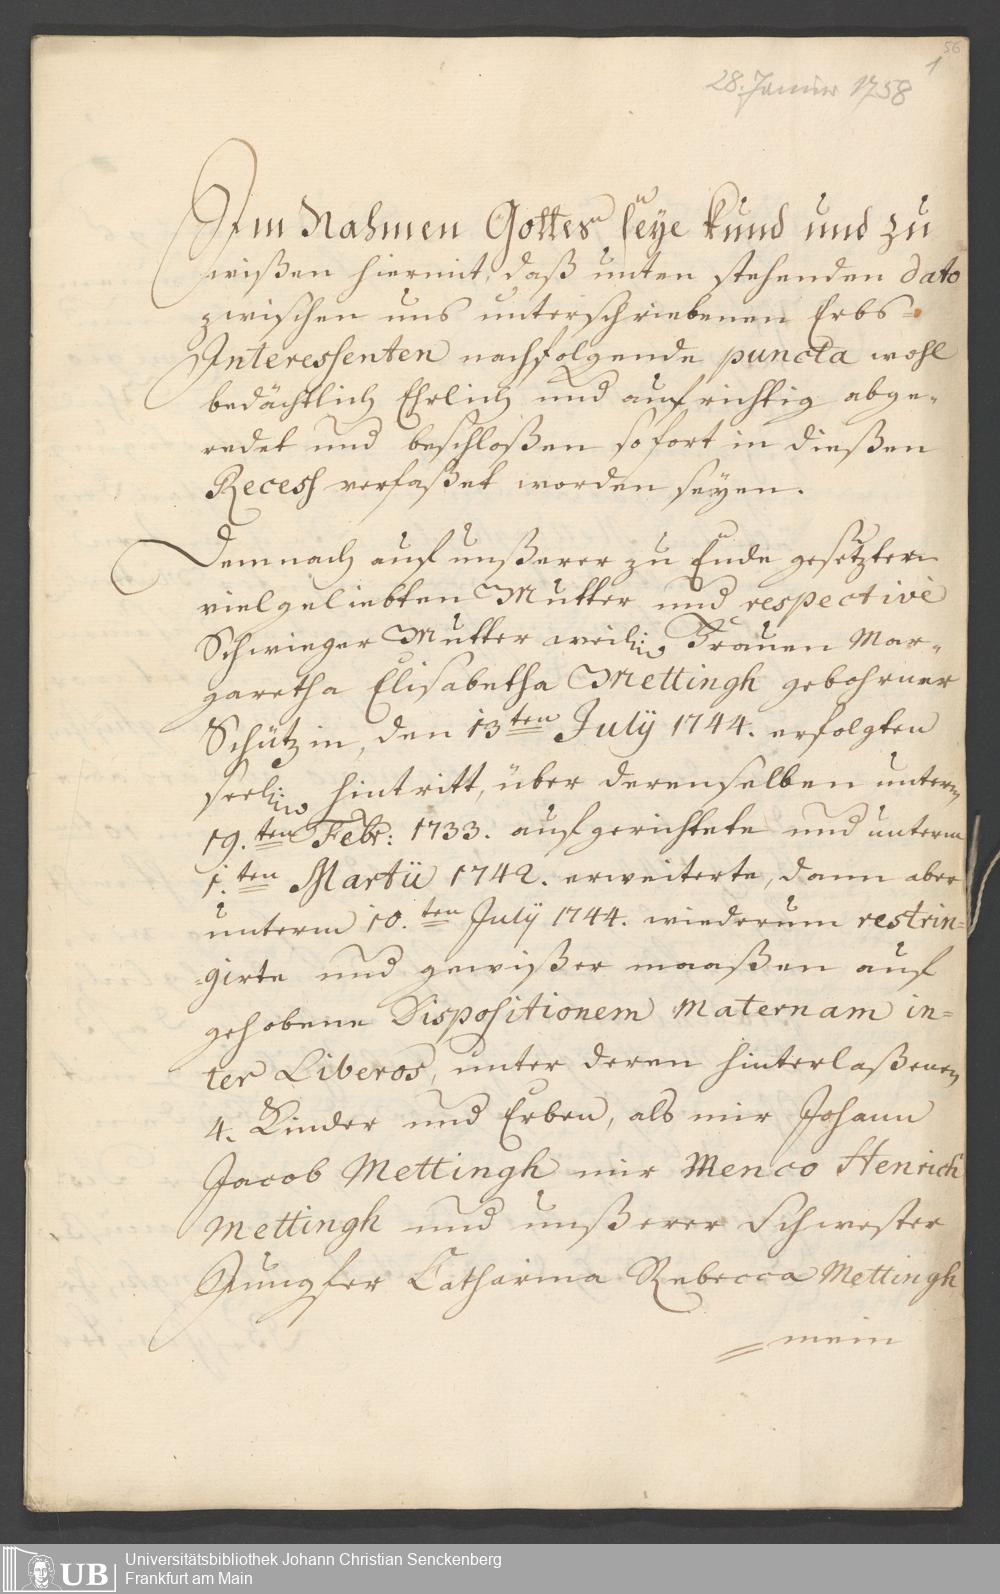 56
1
28. Januar 1758
Im Nahmen Gottes seye kund und zu
wißen hiermit, daß unten stehenden dato
zwischen uns unterschriebenen Erbs=
Interessenten nachfolgende puncta wohl
bedächtlich Ehrlich und aufrichtig abge=
redet und beschloßen sofort in dießen
Recess verfaßet worden seyen.
Demnach auf unßerer zu Ende gesetzter
vielgeliebten Mutter und respective
Schwieger Mutter weil: Frauen Mar=
garetha Elisabetha Mettingh gebohrner
Schützin, den 13ten July 1744. erfolgten
seel: hintritt, über derenselben unterm
19.ten Febr: 1733. aufgerichtete und unterm
1.ten Martii 1742. erweiterte, dann aber
unterm 10.ten July 1744. wiederum restrin=
girte und gewißer maaßen auf
gehobene Dispositionem Maternam in=
ter Liberos, unter deren hinterlaßenen
4. Kinder und Erben, als mir Johann
Jacob Mettingh mir Menco Henrich
Mettingh und unßerer Schwester
Jungfer Catharina Rebecca Mettingh
mein
UB
Universitätsbibliothek Johann Christian Senckenberg
Frankfurt am Main